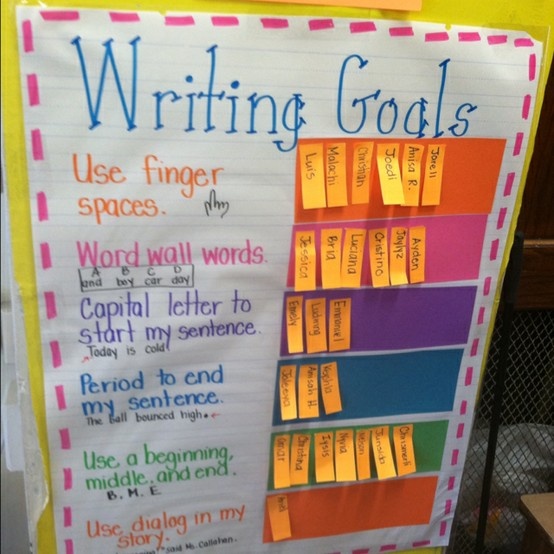 Writing Goals
Use finger
spaces.
Luis
Malachi
Christian
Joedi
Anisa R.
Jarell
Word wall words.
A B C D
and boy car day
Jessica
Bria
Luciana
Cristino
Jaylyz
Ayden
Capital letter to
start my sentence.
Today is cold
Emely
Emmanuel
Period to end
my sentence.
The ball bounced high.
Anisah H.
Use a beginning,
middle, and end.
B. M. E.
Omar
Christina
Use dialog in my
story.
said Ms. Callahan.